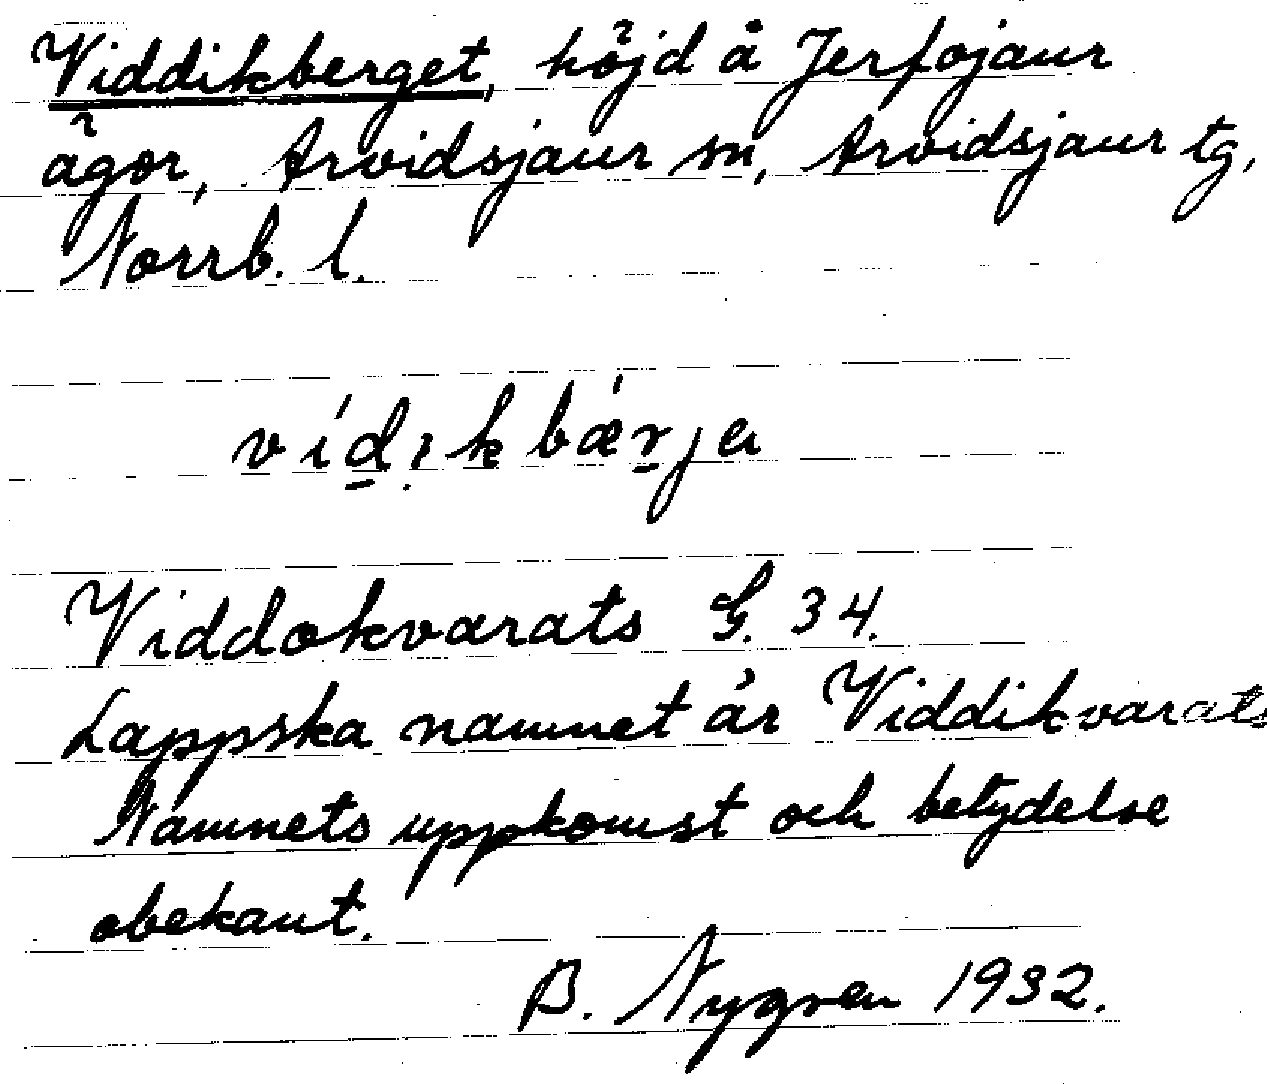 Viddikberget, höjd å Jerfojaur
ägor, Arvidsjaur sn, Arvidsjaur tg,
Norrb. l.
vídi̩kbǽrja
Viddokvarats G. 34.
Lappska namnet är Viddikvarats
Namnets uppkomst och betydelse
obekant.
B. Nygren 1932.